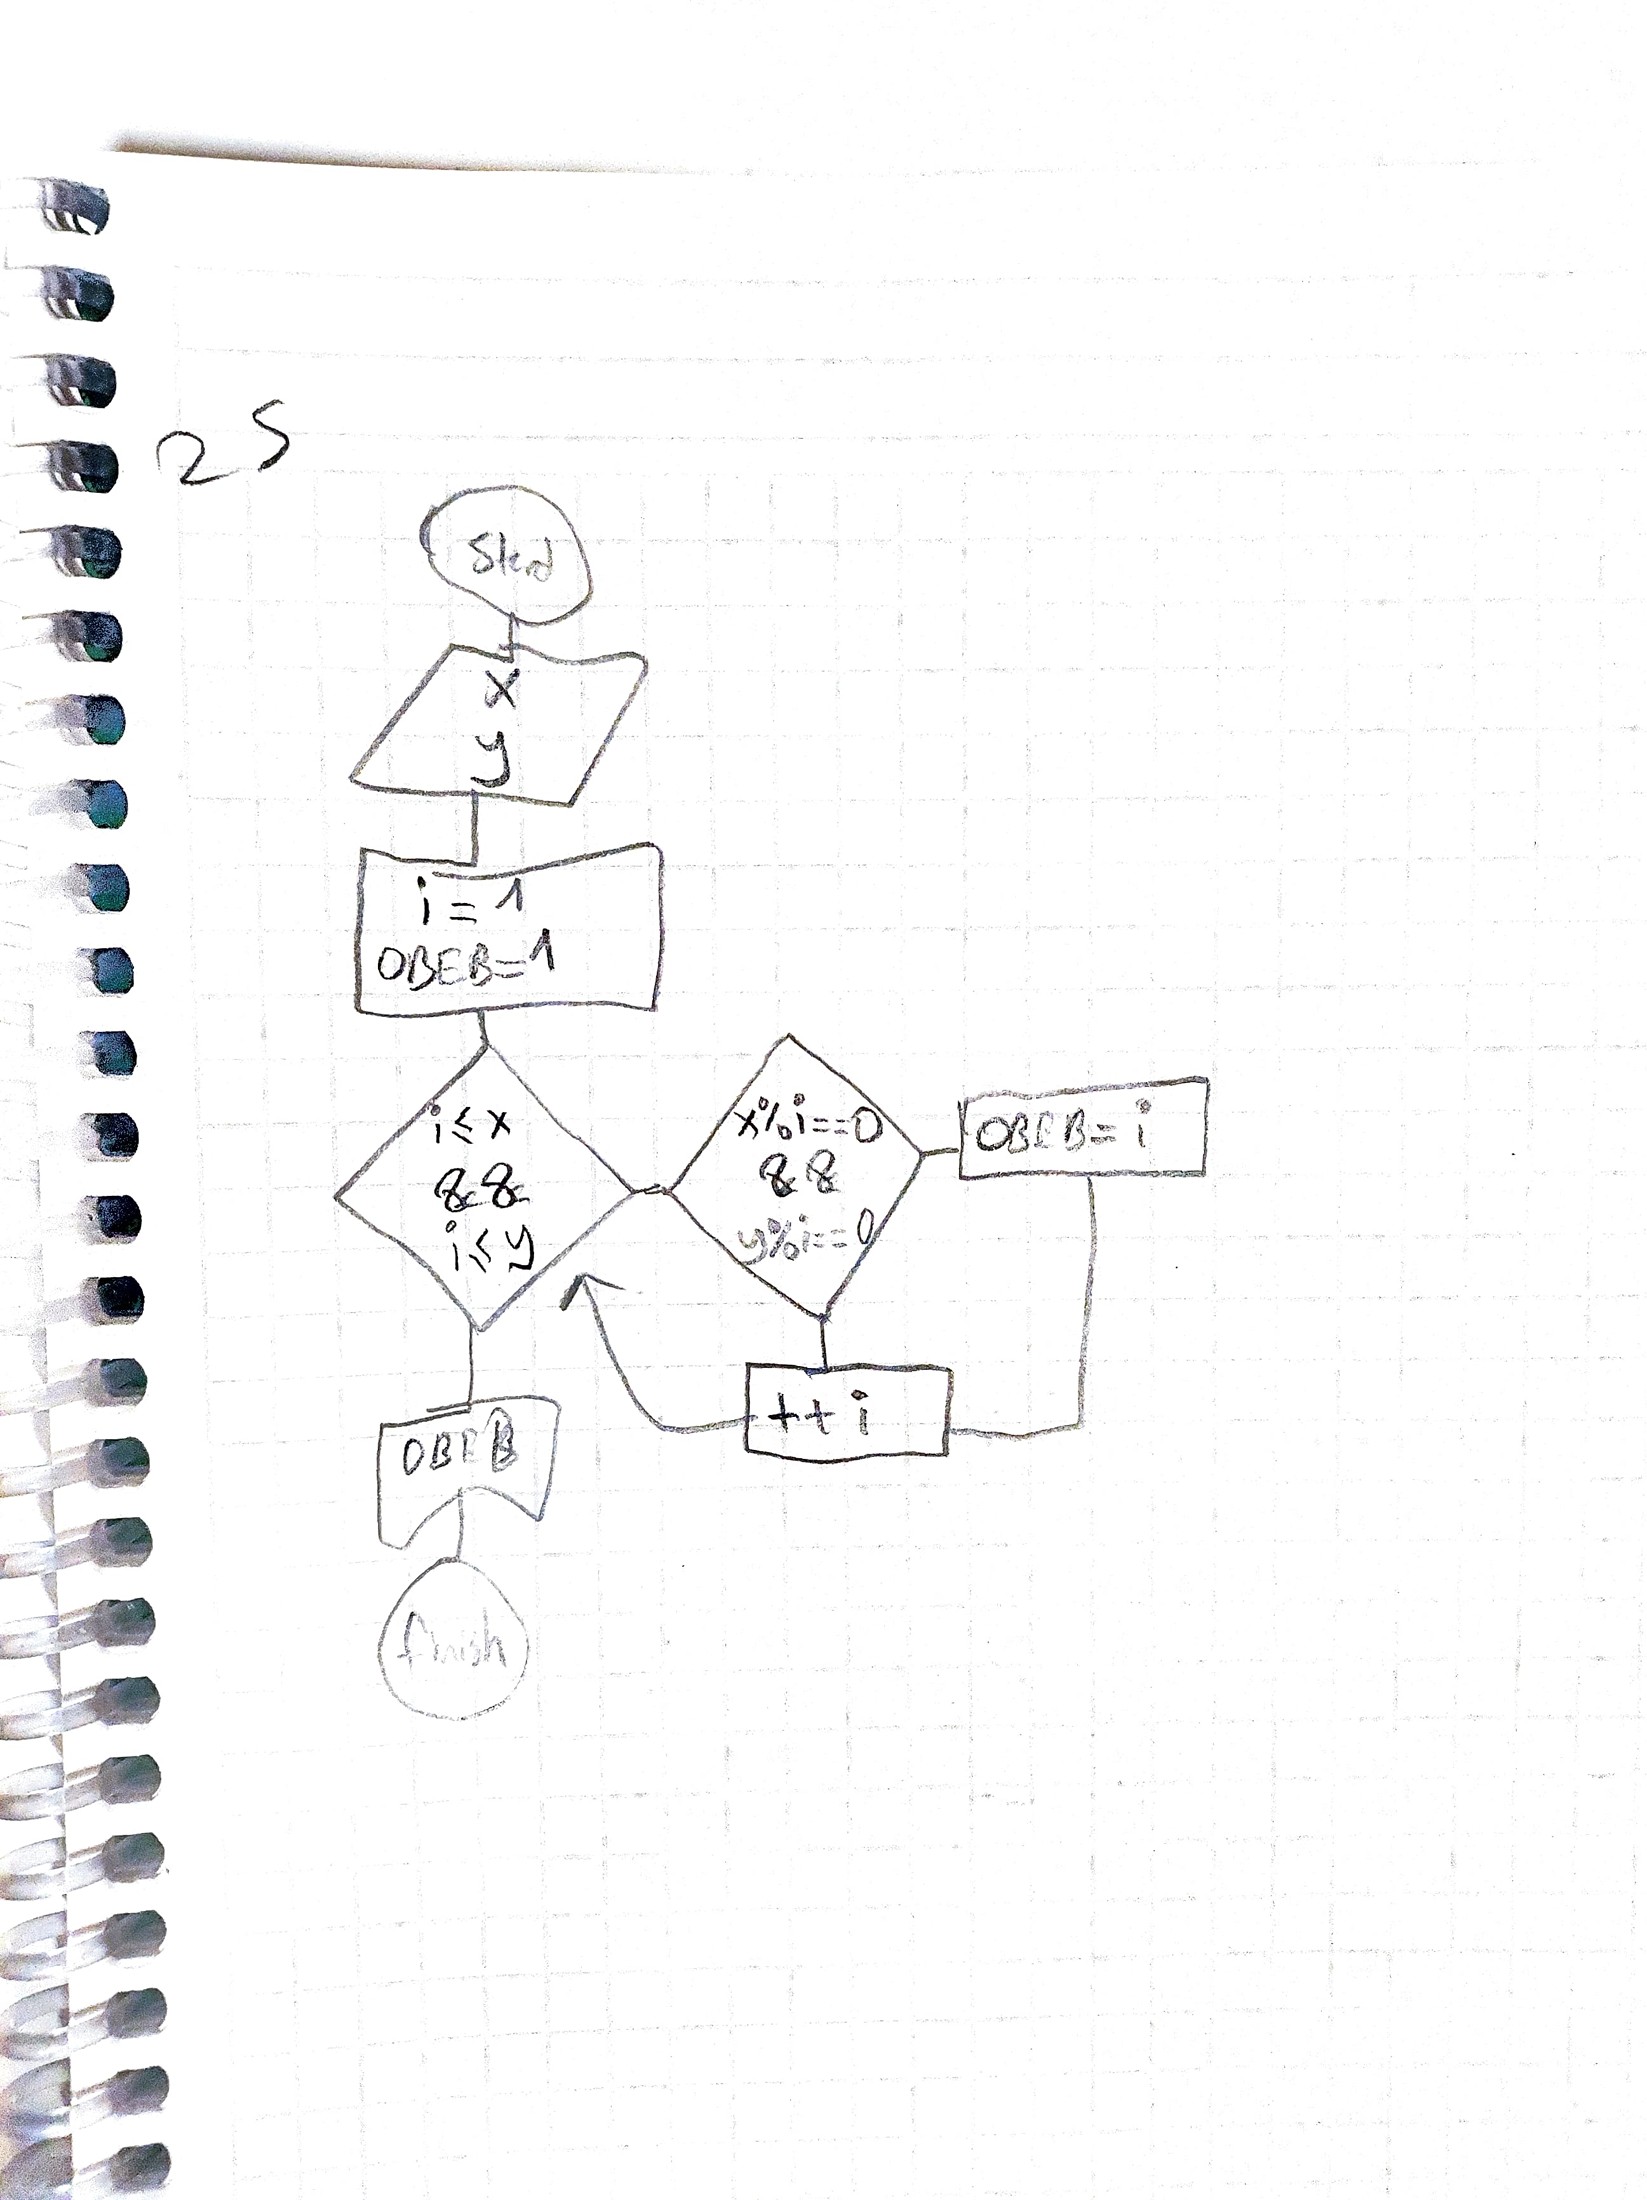 25
Start
x
y
i = 1
OBEB=1
i ≤ x
&&
i ≤ y
x%i==0
&&
y%i==0
OBEB= i
++i
OBEB
finish